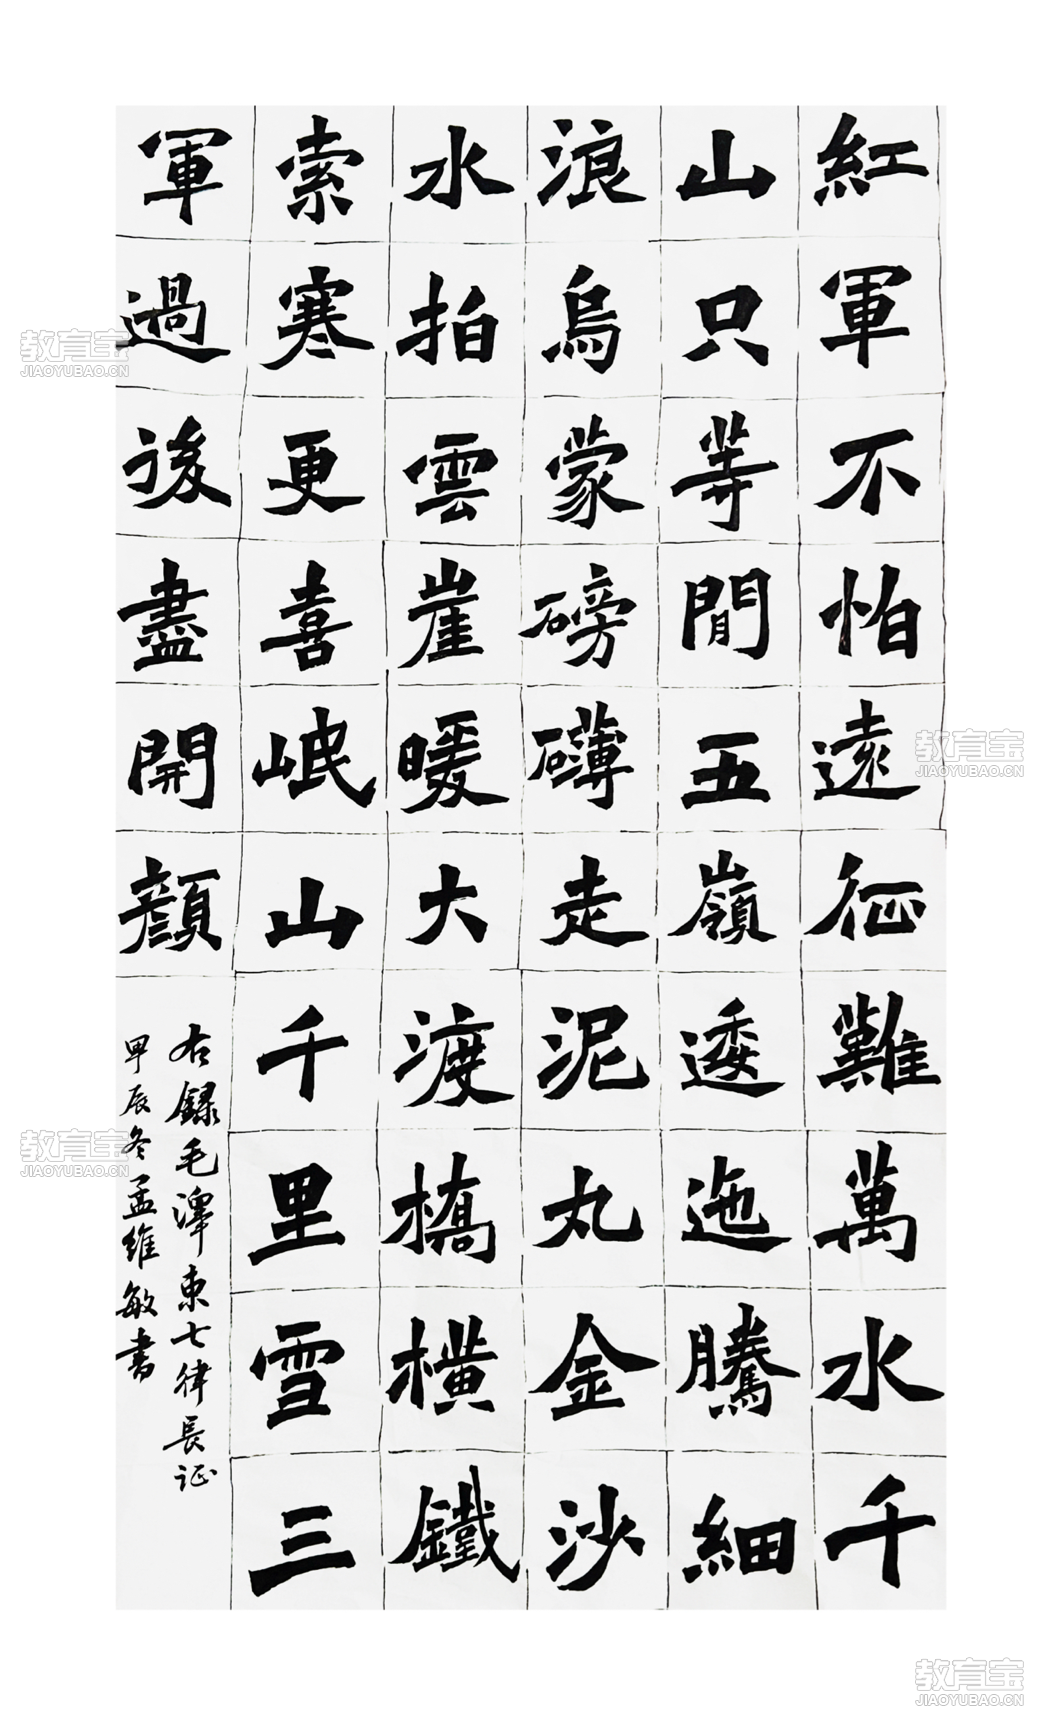 紅軍不怕遠征難萬水千
山只等閒五嶺逶迤騰細
浪烏蒙磅礴走泥丸金沙
水拍雲崖暖大渡橋橫鐵
索寒更喜岷山千里雪三
軍過後盡開顏
右錄毛澤東七律長征
甲辰冬孟維敏書
教育宝
JIAOYUBAO.CN
教育宝
JIAOYUBAO.CN
教育宝
JIAOYUBAO.CN
教育宝
JIAOYUBAO.CN